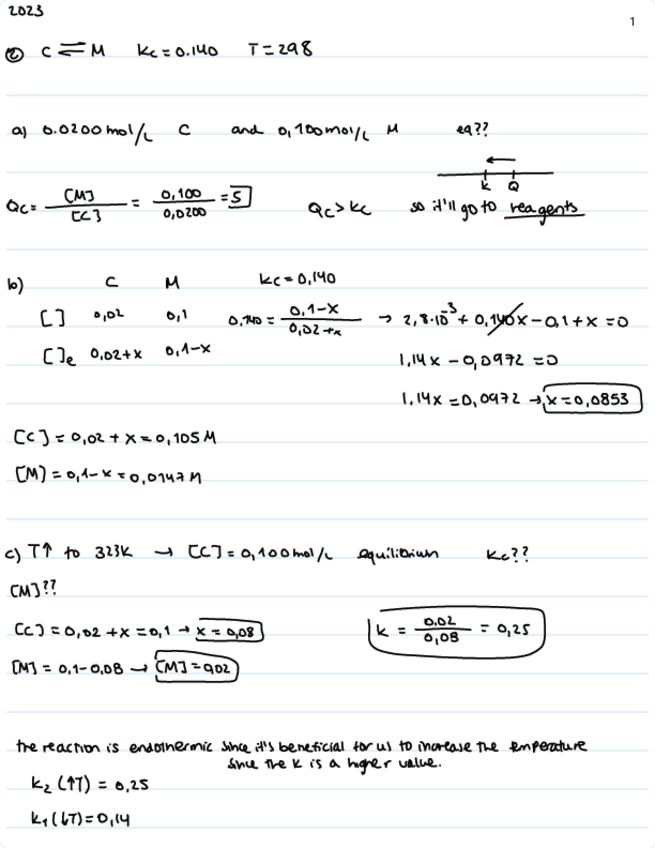 2023
1
② C ⇌ M Kc = 0.140 T = 298
a) 0.0200 mol/L C and 0,100 mol/L M eq??
Qc = [M]/[C] = 0,100/0,0200 = 5 Qc > Kc so it'll go to reagents
K Q
b) C M Kc = 0,140
[ ] 0,02 0,1 0,140 = (0,1-x)/(0,02+x) → 2,8·10⁻³ + 0,140x - 0,1 + x = 0
[ ]e 0,02+x 0,1-x 1,14x - 0,0972 = 0
1,14x = 0,0972 → x = 0,0853
[C] = 0,02 + x = 0,105 M
[M] = 0,1 - x = 0,0147 M
c) T↑ to 323K → [C] = 0,100 mol/L equilibrium Kc??
[M]??
[C] = 0,02 + x = 0,1 → x = 0,08 K = 0,02/0,08 = 0,25
[M] = 0,1 - 0,08 → [M] = 0,02
the reaction is endothermic since it's beneficial for us to increase the emperature
since the K is a higher value.
K₂ (↑T) = 0,25
K₁ (↓T) = 0,14